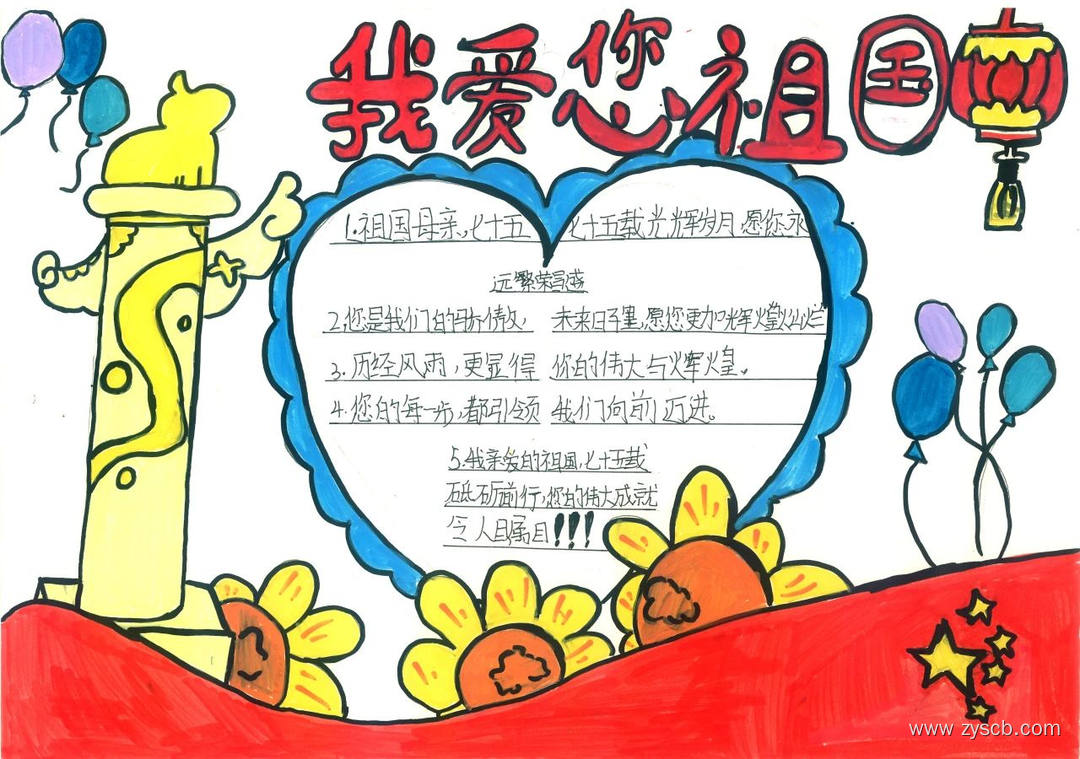 我爱您祖国
1.祖国母亲,七十五 七十五载光辉岁月,愿您永
远繁荣昌盛
2.您是我们的骄傲, 未来日子里,愿您更加辉煌灿烂
3.历经风雨,更显得 你的伟大与辉煌。
4.您的每一步,都引领 我们向前迈进。
5.我亲爱的祖国,七十五载
砥砺前行,您的伟大成就
令人瞩目!!!
www.zyscb.com